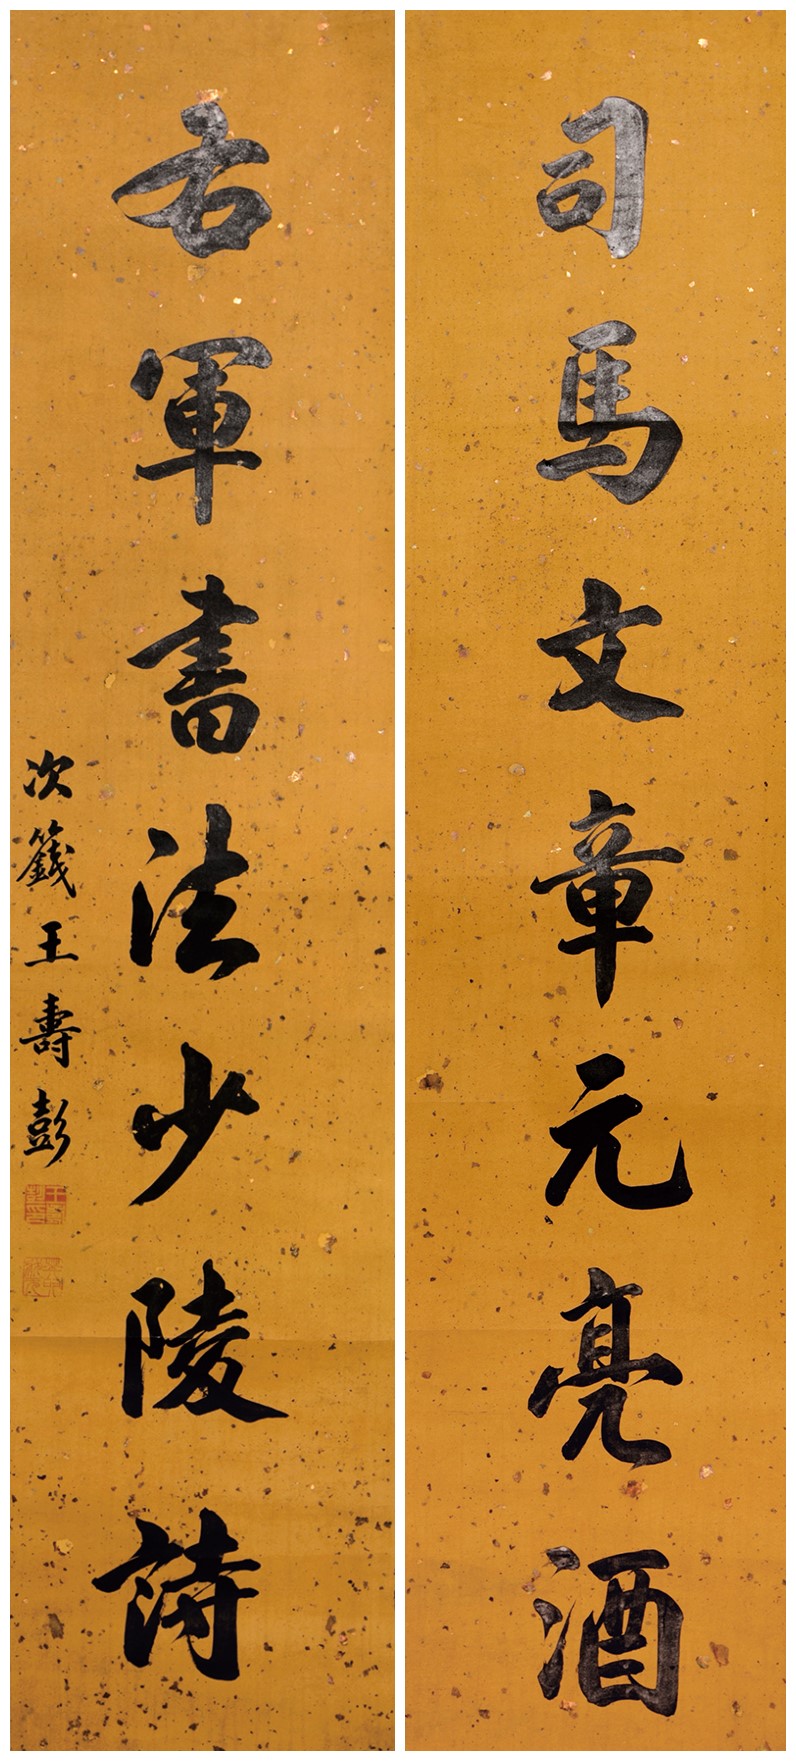 司馬文章元亮酒
右軍書法少陵詩
次籛王壽彭